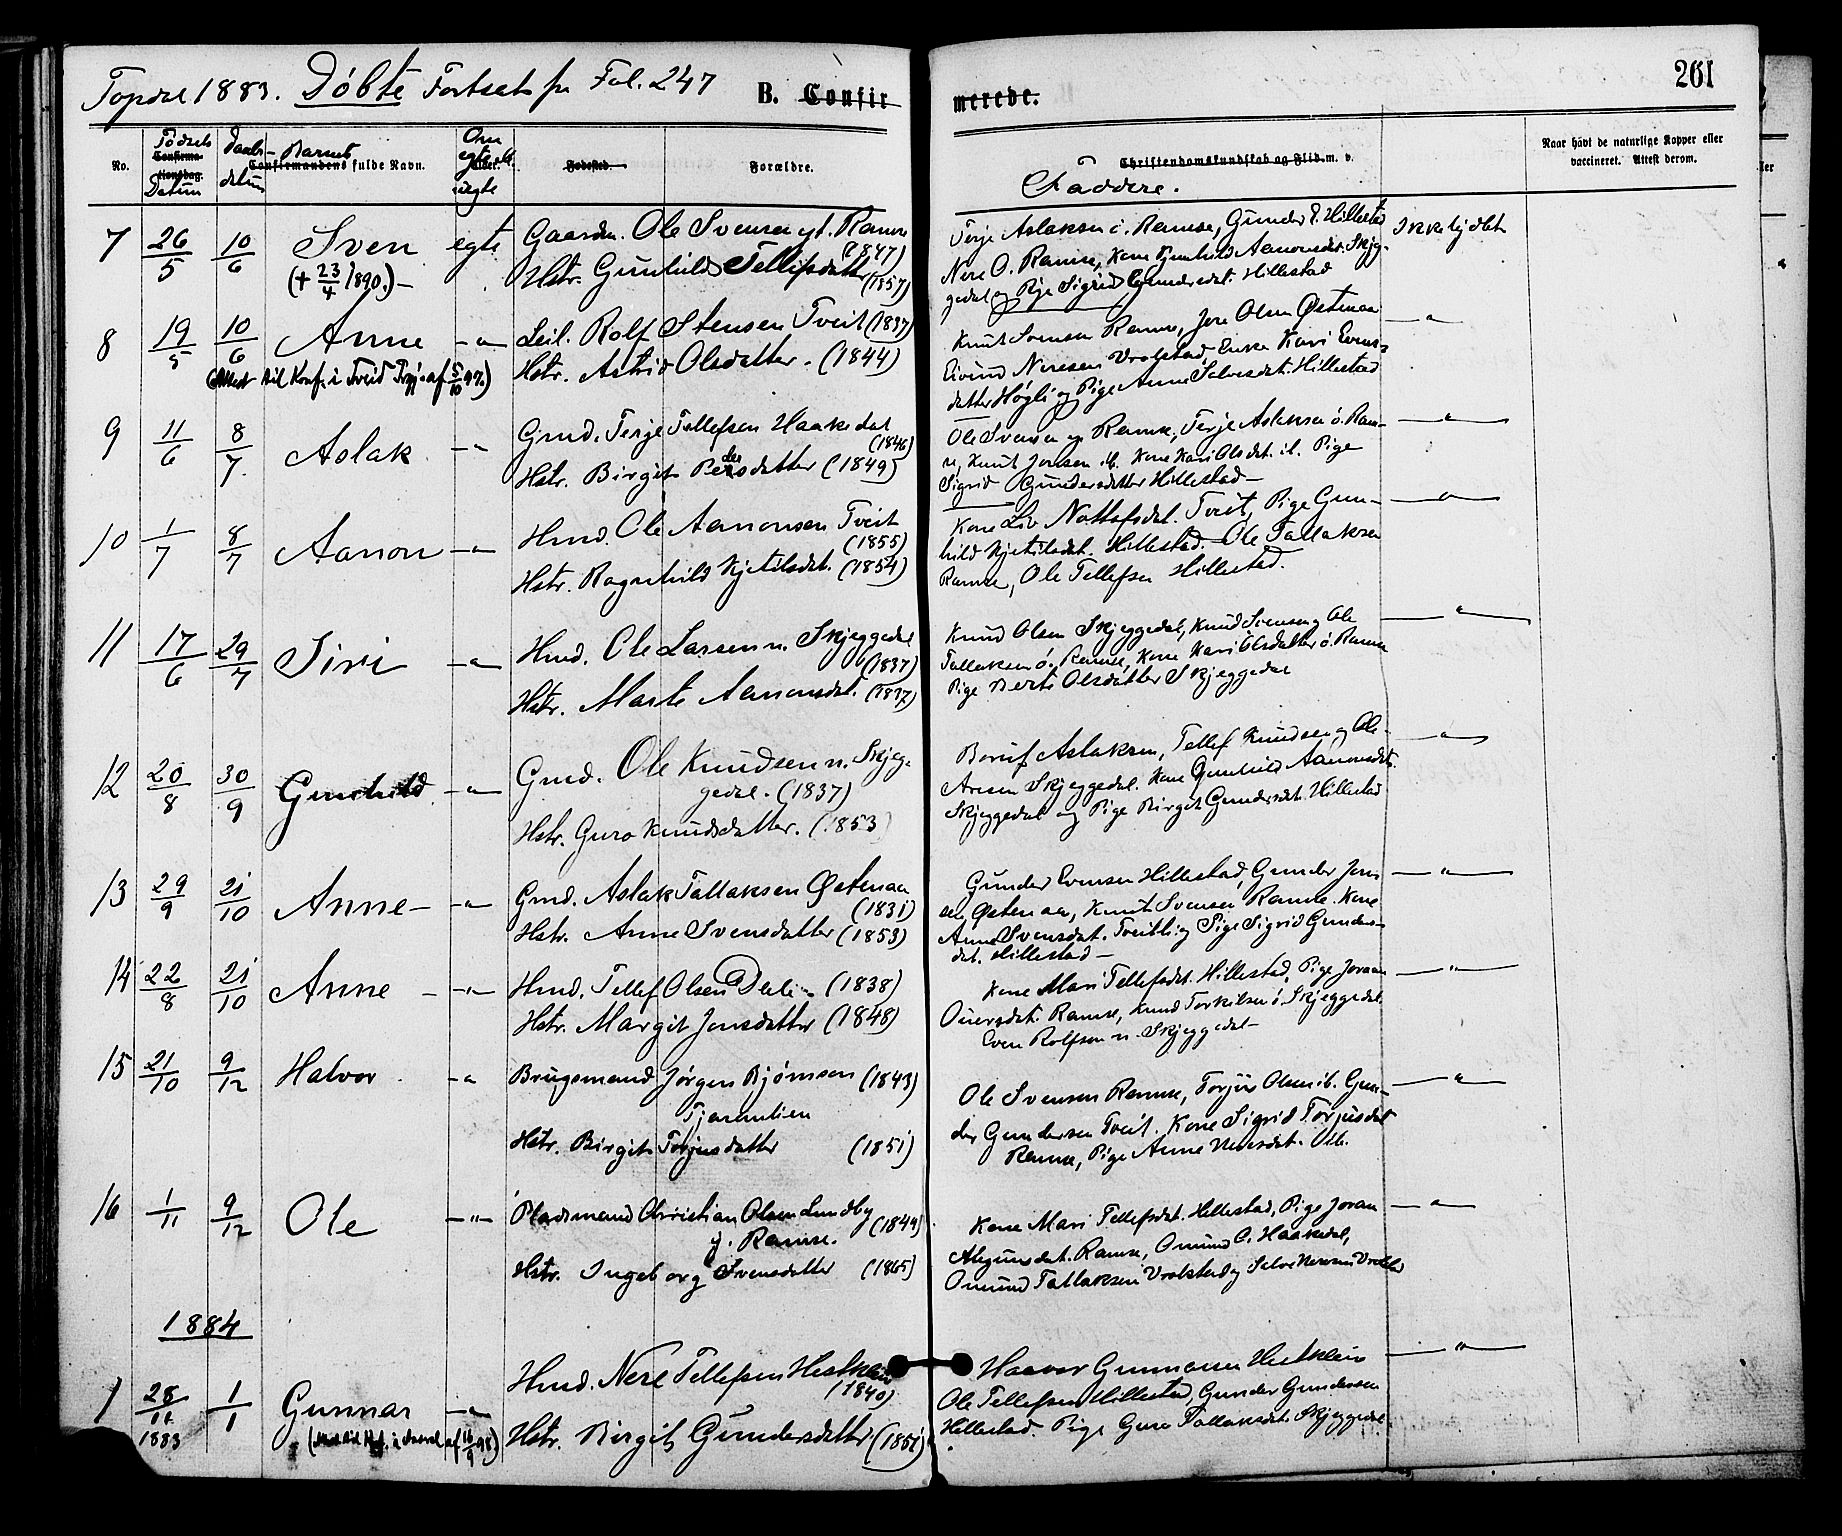 Topdal 1883. Døbte Fortsat fr Fol. 247
B. Confirmerede.
261
No.
Fødsels Datum
Confirmationsdag.
Daabsdatum
Barnets
Confirmandens fulde Navn.
Om egte el. uegte
Alder.
Fødested.
Forældre.
Christendomskundskab og Flid m. v.
Faddere.
Naar havt de naturlige Kopper eller
vaccineret. Attest derom.
7 26/5 10/6 Sven egte Gaardm. Ole Svensen yt. Ramse (1847)
(+ 23/4 1890.) –
Hstr. Gunhild Tellefsdatter (1857)
Terje Aslaksen i. Ramse, Gunder E. Hillestad
Nere O. Ramse, Kone Gunhild Aanonsdat. Skjeg-
gedal og Pige Sigrid Gundersdat. Hillestad
Ikke hjdbt
8 19/5 10/6 Anne –"– Leil. Rolf Stensen Tveit (1837)
(Attest til Konf. i Treid Prgj. af 5/10 97.)
Hstr. Astrid Olsdatter. (1844)
Knut Svensen Ramse, Jore Olsen Østenaa
Eivind Neresen Vrolstad, Enke Kari Evens-
datter Høgli og Pige Anne Salvesdat. Hillestad
–"–
9 11/6 8/7 Aslak –"– Gmd. Terje Tellefsen Haakedal (1846)
Hstr. Birgit Pedersdatter (1849)
Ole Svensen yt Ramse, Terje Aslaksen ö. Ram-
se, Knut Jonsen ib. Kone Kari Olsdat. ib. Pige
Sigrid Gundersdatter Hillestad –
–"–
10 1/7 8/7 Aanon –"– Hmd. Ole Aanonsen Tveit (1855)
Hstr. Ragnhild Kjetilsdat. (1854)
Kone Liv Nottolfsdat. Tveit, Pige Gun-
hild Kjetilsdat. Hillestad. Ole Tallaksen
Ramse, Ole Tellefsen Hillestad.
–"–
11 17/6 29/7 Sivi –"– Hmd. Ole Larsen n. Skjeggedal (1837)
Hstr. Marte Aanonsdat. (1837)
Knud Olsen Skjeggedal, Knud Svensen og Ole
Tallaksen ö. Ramse, Kone Kari Olsdatter ö. Ramse
Pige Berte Olsdatter Skjeggedal
–"–
12 20/8 30/9 Gunhild –"– Gmd. Ole Knudsen n. Skjeg-
gedal. (1837)
Hstr. Guro Knudsdatter. (1853)
Boruf Aslaksen, Tellef Knudsen og Ole
Aresen Skjeggedal. Kone Gunhild Aanonsdat.
Skjeggedal og Pige Birgit Gundersdat. Hillestad
–"–
13 29/9 21/10 Anne – –"– Gmd. Aslak Tallaksen Østenaa (1831)
Hstr. Anne Svensdatter (1853)
Gunder Evensen Hillestad, Gunder Jens
sen Østenaa, Knut Svensen Ramse. Kone
Anne Svensdat. Tveitli og Pige Sigrid Gunders-
dat. Hillestad –
–"–
14 22/8 21/10 Anne – –"– Hmd. Tellef Olsen Dalen (1838)
Hstr. Margit Jonsdatter (1848)
Kone Mari Tellefsdat. Hillestad, Pige Joraan
Ouversdat. Ramse, Knud Torkilsen ö. Skjeggedal
Even Rolfsen n. Skjeggedal –
–"–
15 21/10 9/12 Halvor –"– Brugsmand Jørgen Bjørnsen (1843)
Tjaranlien
Hstr. Birgit Torjusdatter (1851)
Ole Svensen Ramse, Torjus Olsen ib. Gun-
der Gundersen Tveit. Kone Sigrid Torjusdat
Ramse, Pige Anne Neresdat. ib.
–"–
16 1/11 9/12 Ole –"– Pladsmand Christian Olsen Lundby (1849)
y. Ramse.
Hstr. Ingeborg Svensdatter (1865)
Kone Mari Tellefsdat. Hillestad, Pige Joran
Alegunsdat. Ramse, Omund O. Haakedal,
Omund Tallaksen Vrolstad og Salve Neresen Vrolstad
–"–
1884
1 28/11 1883 1/1 Gunnar –"– Hmd. Nere Tellefsen Hestklein (1840)
(Attest til Kf. i af 16/9 98)
Hstr. Birgit Gundersdatter (1851)
Haavor Gunnarsen Hestklein
Ole Tellefsen Hillestad, Gunder Gundersen
Hillestad. Pige Guro Tallaksdat. Skjeggedal
–"–